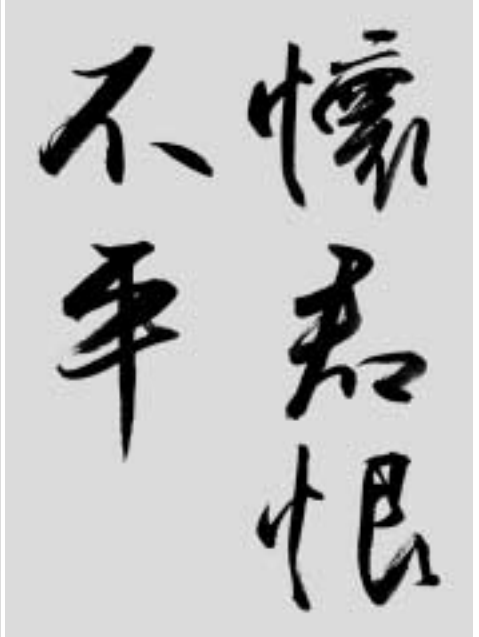 懷君恨
不平